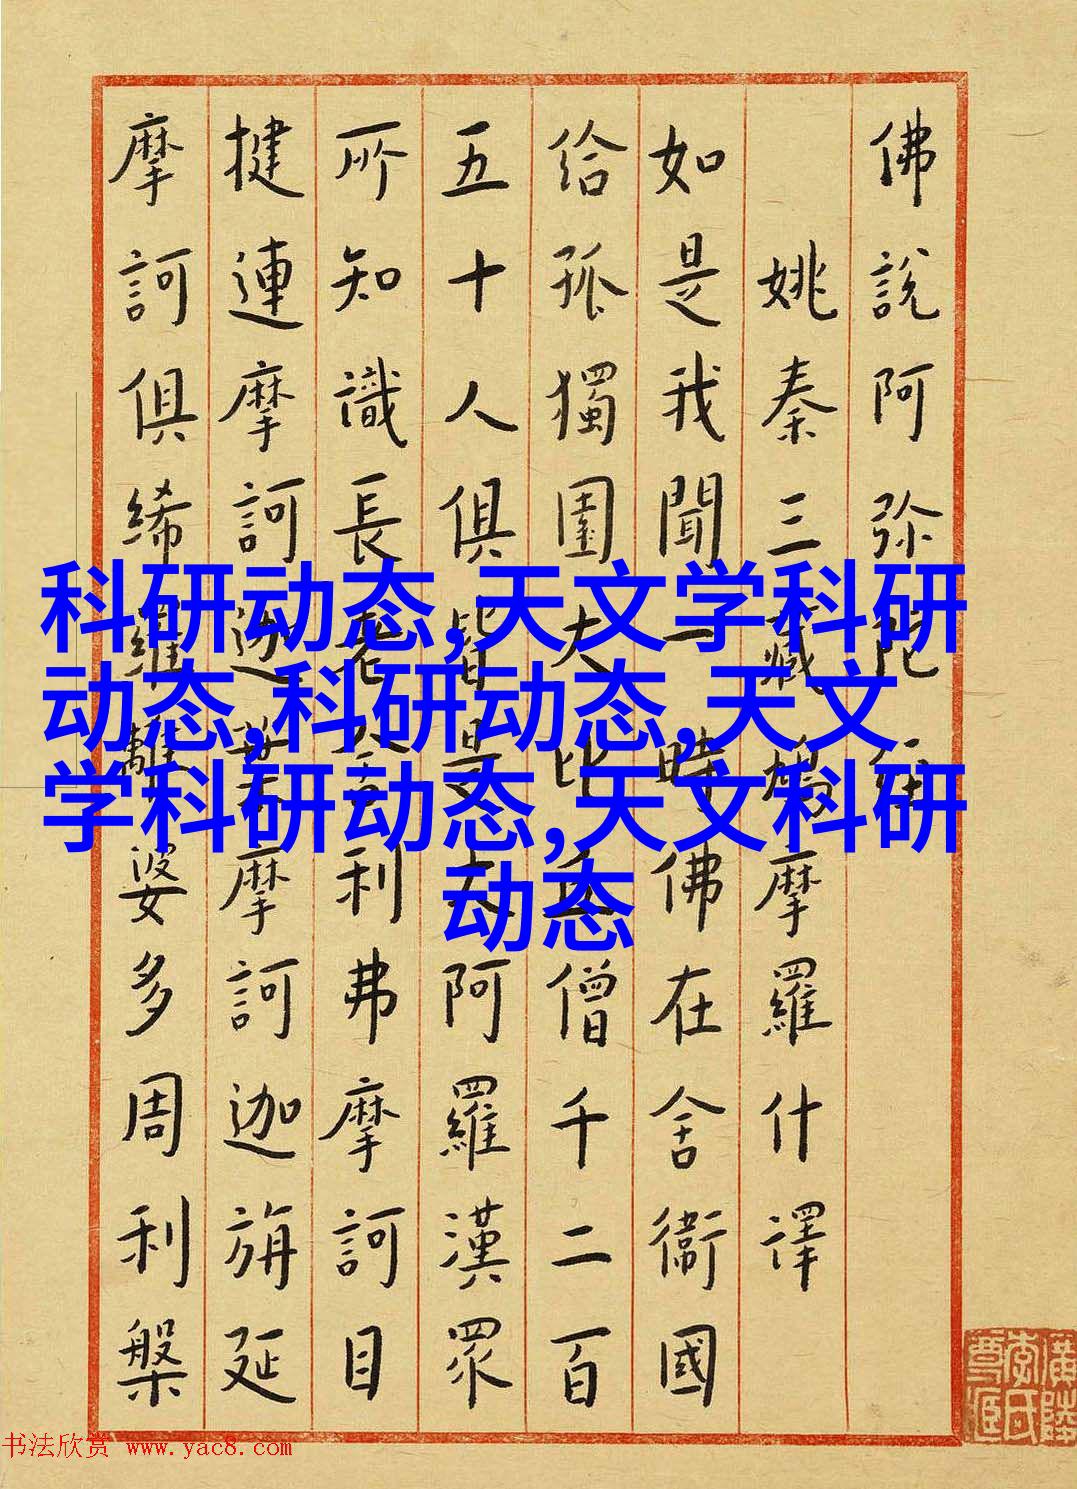 佛說阿弥陀經
姚秦三藏鳩摩羅什譯
如是我聞一時佛在舍衛國
給孤獨園大比丘僧千二百
五十人俱皆是大阿羅漢眾
所知識長老舍利弗摩訶目
揵連摩訶迦葉摩訶迦旃延
摩訶俱絺羅離婆多周利槃
科研动态,天文学科研
动态,科研动态,天文
学科研动态,天文科研
动态
书法欣赏 www.yac8.com